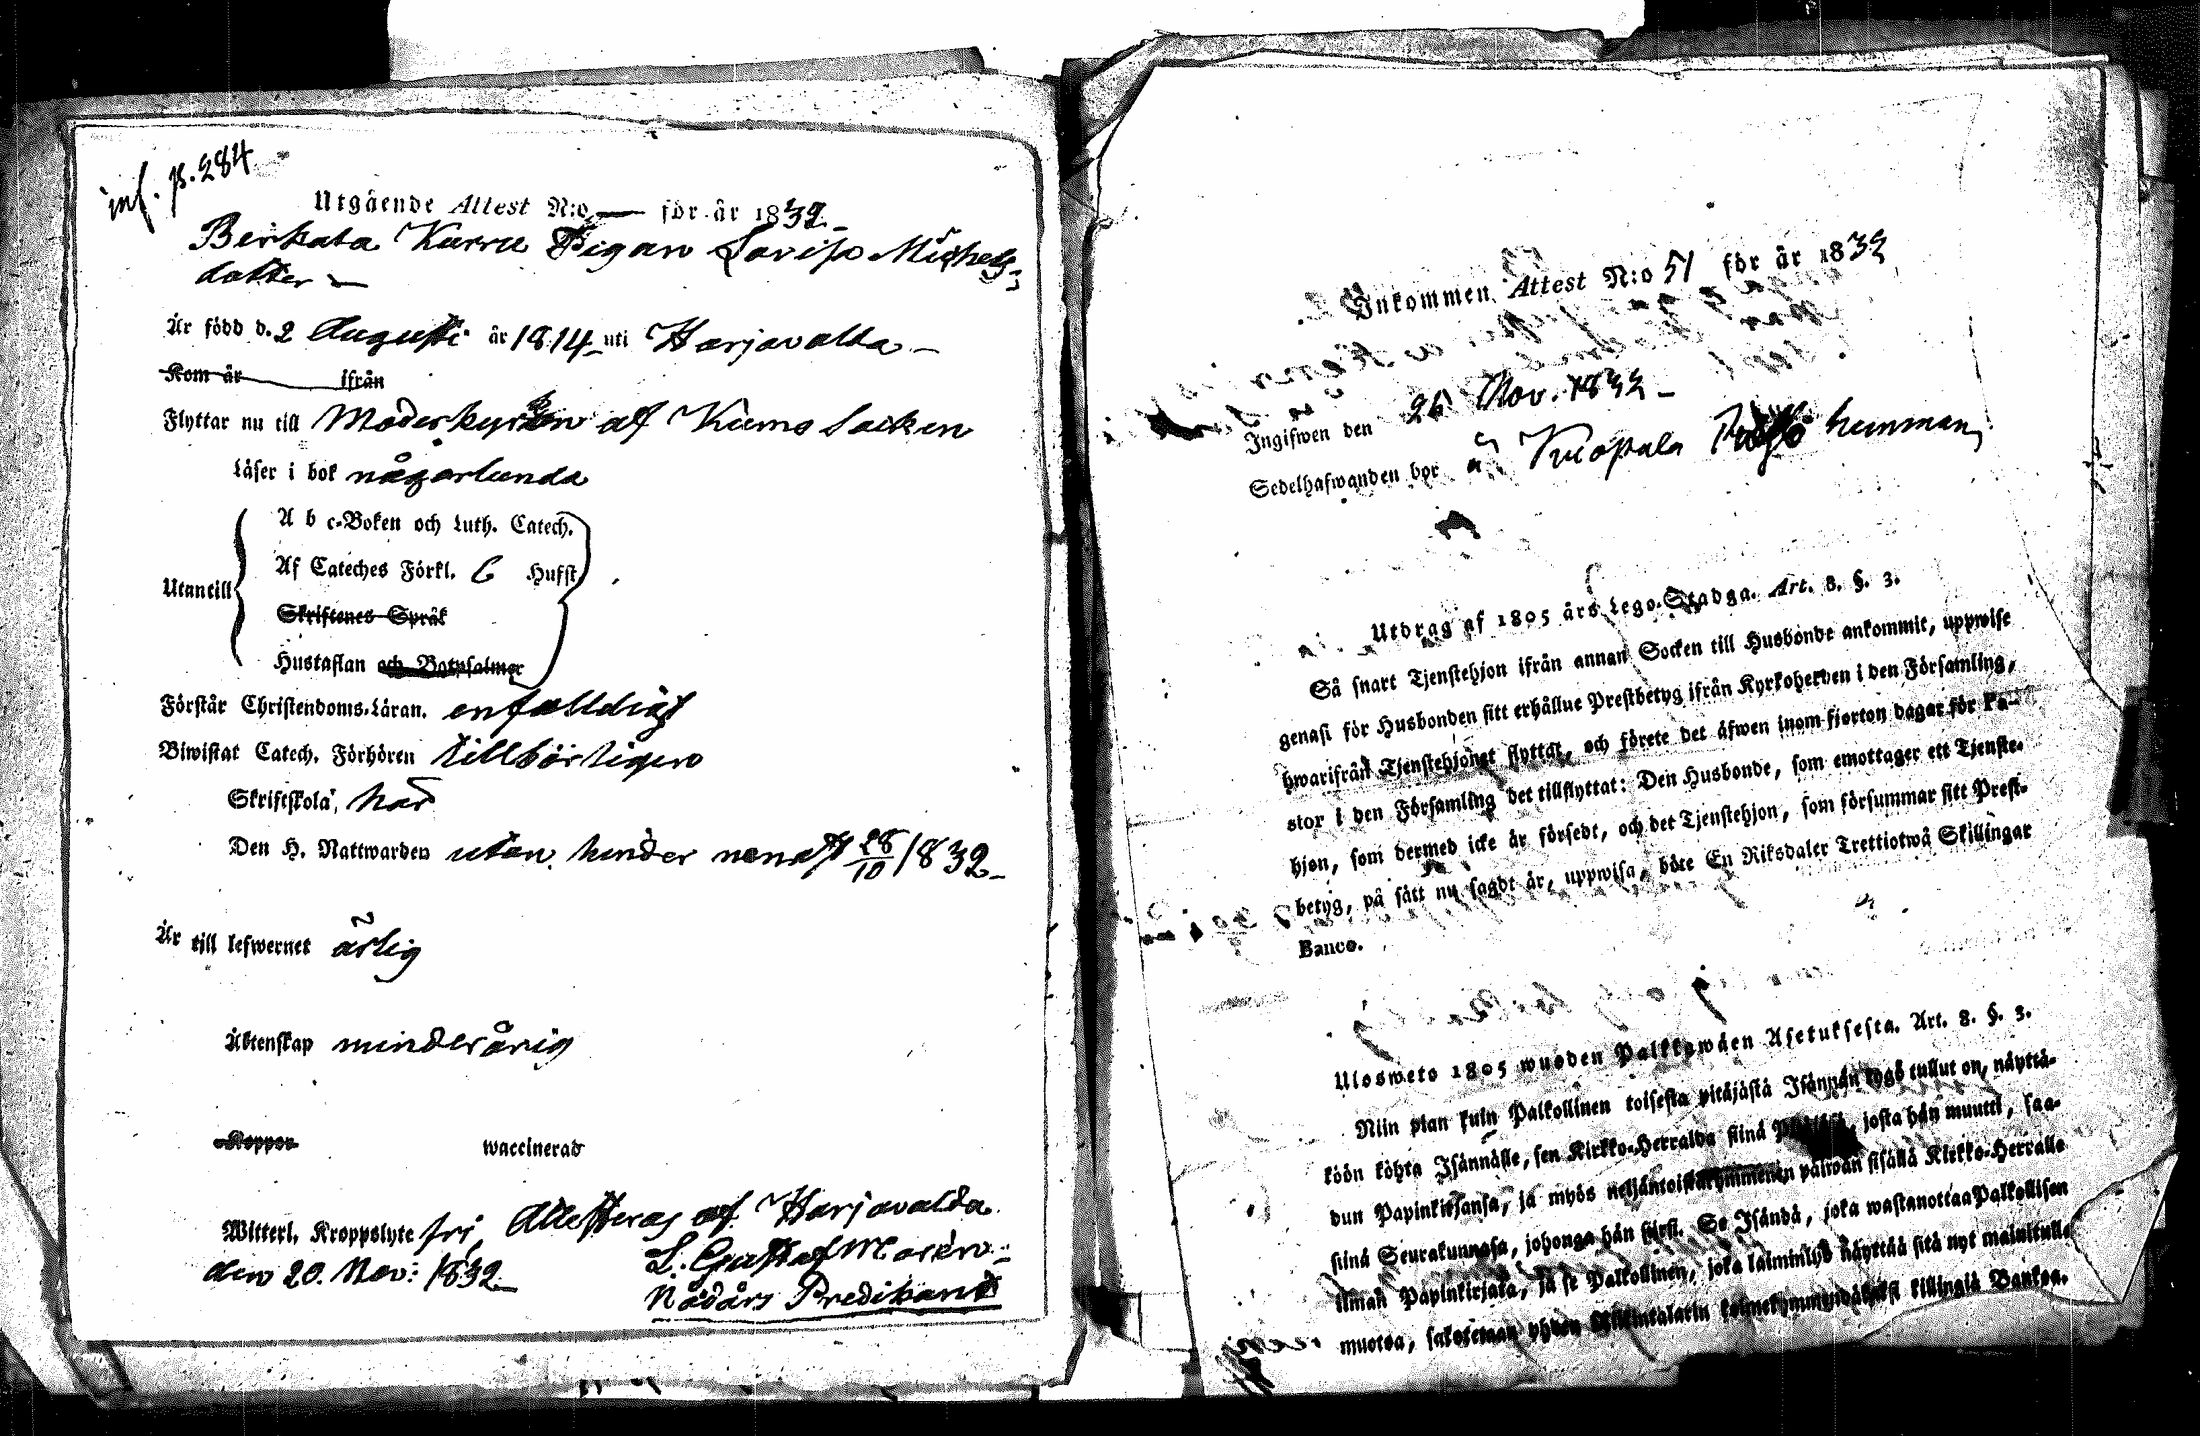 inf. p. 284
Utgående Attest N:o — för år 1832.
Berkala Karru Pigan Lovisa Michels-
dotter
Är född d. 2 Augusti år 1814 uti Harjavalda
Kom år ifrån
Flyttar nu till Moderkyrkan af Kumo Socken
Läser i bok någorlunda
A b c-Boken och Luth. Catech.
Af Cateches Förkl. 6 Hufst.
Utantill
Skriftenes Språk
Hustaflan och Botpsalmer
Förstår Christendoms-Läran. enfalldigt
Biwistat Catech. Förhören tillbörligen
Skriftskola, har
Den H. Nattwarden utan hinder nenast 28/10 1832
Är till lefwernet ärlig
Äktenskap minderårig
Koppor waccinerad
Witterl. Kroppslyte fri, Attesteras af Harjavalda
den 20. Nov: 1832 L. Gustaf Morén
Nådårs Predikant
Inkommen Attest N:o 51 för år 1832
Ingifwen den 26 Nov. 1832
Sedelhafwanden bor å Kuopala hemman
Utdrag af 1805 års Lego-Stadga. Art. 8. §. 3.
Så snart Tjenstehjon ifrån annan Socken till Husbonde ankommit, uppwise
genast för Husbonden sitt erhållne Prestbetyg ifrån Kyrkoherden i den Församling,
hwarifrån Tjenstehjonet flyttat, och förete det äfwen inom fjorton dagar för Pa-
stor i den Församling det tillflyttat: Den Husbonde, som emottager ett Tjenste-
hjon, som dermed icke är försedt, och det Tjenstehjon, som försummar sitt Prest-
betyg, på sätt nu sagdt är, uppwisa, böte En Riksdaler Trettiotwå Skillingar
Banco.
Ulosweto 1805 wuoden Palkkawäen Asetuksesta. Art. 8. §. 3.
Niin pian kuin Palkollinen toisesta pitäjästä Isännän tygö tullut on, näyttä-
köön kohta Isännälle, sen Kirkko-Herralda siinä josta hän muutti, saa-
dun Papinkirjansa, ja myös neljäntoistakymmenen päiwän sisällä Kirkko-Herralle
siinä Seurakunnasa, johonga hän siirsi. Se Isändä, joka wastanottaa Palkollisen
ilman Papinkirjata, ja se Palkollinen, joka laiminlyö näyttää sitä nyt mainitulla
muotoa, sakotetaan yhden Riksintalarin kolmekymmendäkaksi killingiä Bankoa.